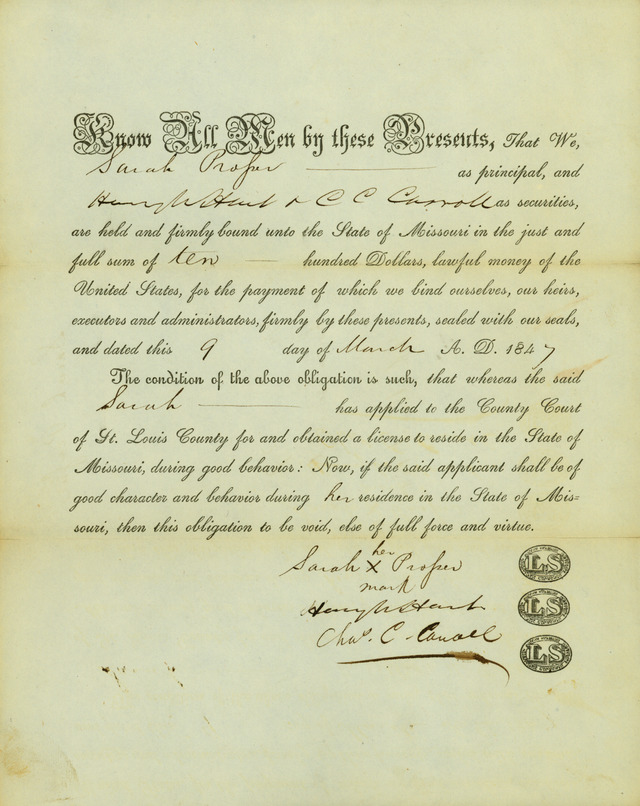 Know All Men by these Presents, That We,
Sarah Prosser as principal, and
Hart & C C Carroll as securities,
are held and firmly bound unto the State of Missouri in the just and
full sum of ten hundred Dollars, lawful money of the
United States, for the payment of which we bind ourselves, our heirs,
executors and administrators, firmly by these presents, sealed with our seals,
and dated this 9 day of March A. D. 1847
The condition of the above obligation is such, that whereas the said
Sarah has applied to the County Court
of St. Louis County for and obtained a license to reside in the State of
Missouri, during good behavior: Now, if the said applicant shall be of
good character and behavior during her residence in the State of Mis=
souri, then this obligation to be void, else of full force and virtue.
her
Sarah X Prosser
mark
Hart
Chas. C. Carroll
LS
LS
LS